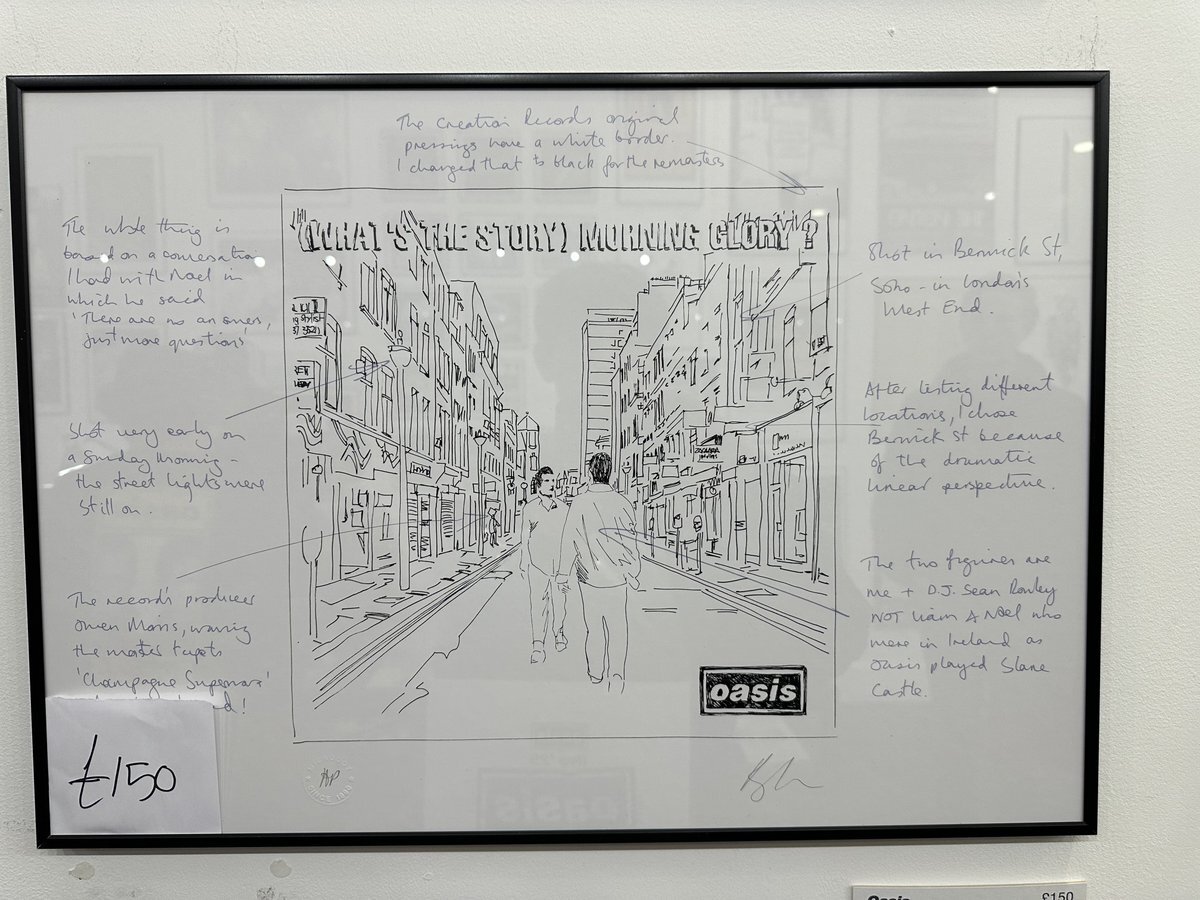 The Creation Records original
pressings have a white border.
I changed that to black for the remasters
The whole thing is
based on a conversation
I had with Noel in
which he said
'There are no answers,
just more questions'
Shot very early on
a Sunday Morning –
the street lights were
still on.
The record's producer
Owen Morris, waving
the master tapes
'Champagne Supernova'
d!
(WHAT'S THE STORY) MORNING GLORY ?
oasis
Shot in Berwick St,
Soho - in London's
West End.
After testing different
locations, I chose
Berwick St because
of the dramatic
linear perspective.
The two figures are
me + D.J. Sean Rowley
NOT Liam & Noel who
were in Ireland as
Oasis played Slane
Castle.
£150
AP
SINCE 1980
Oasis £150